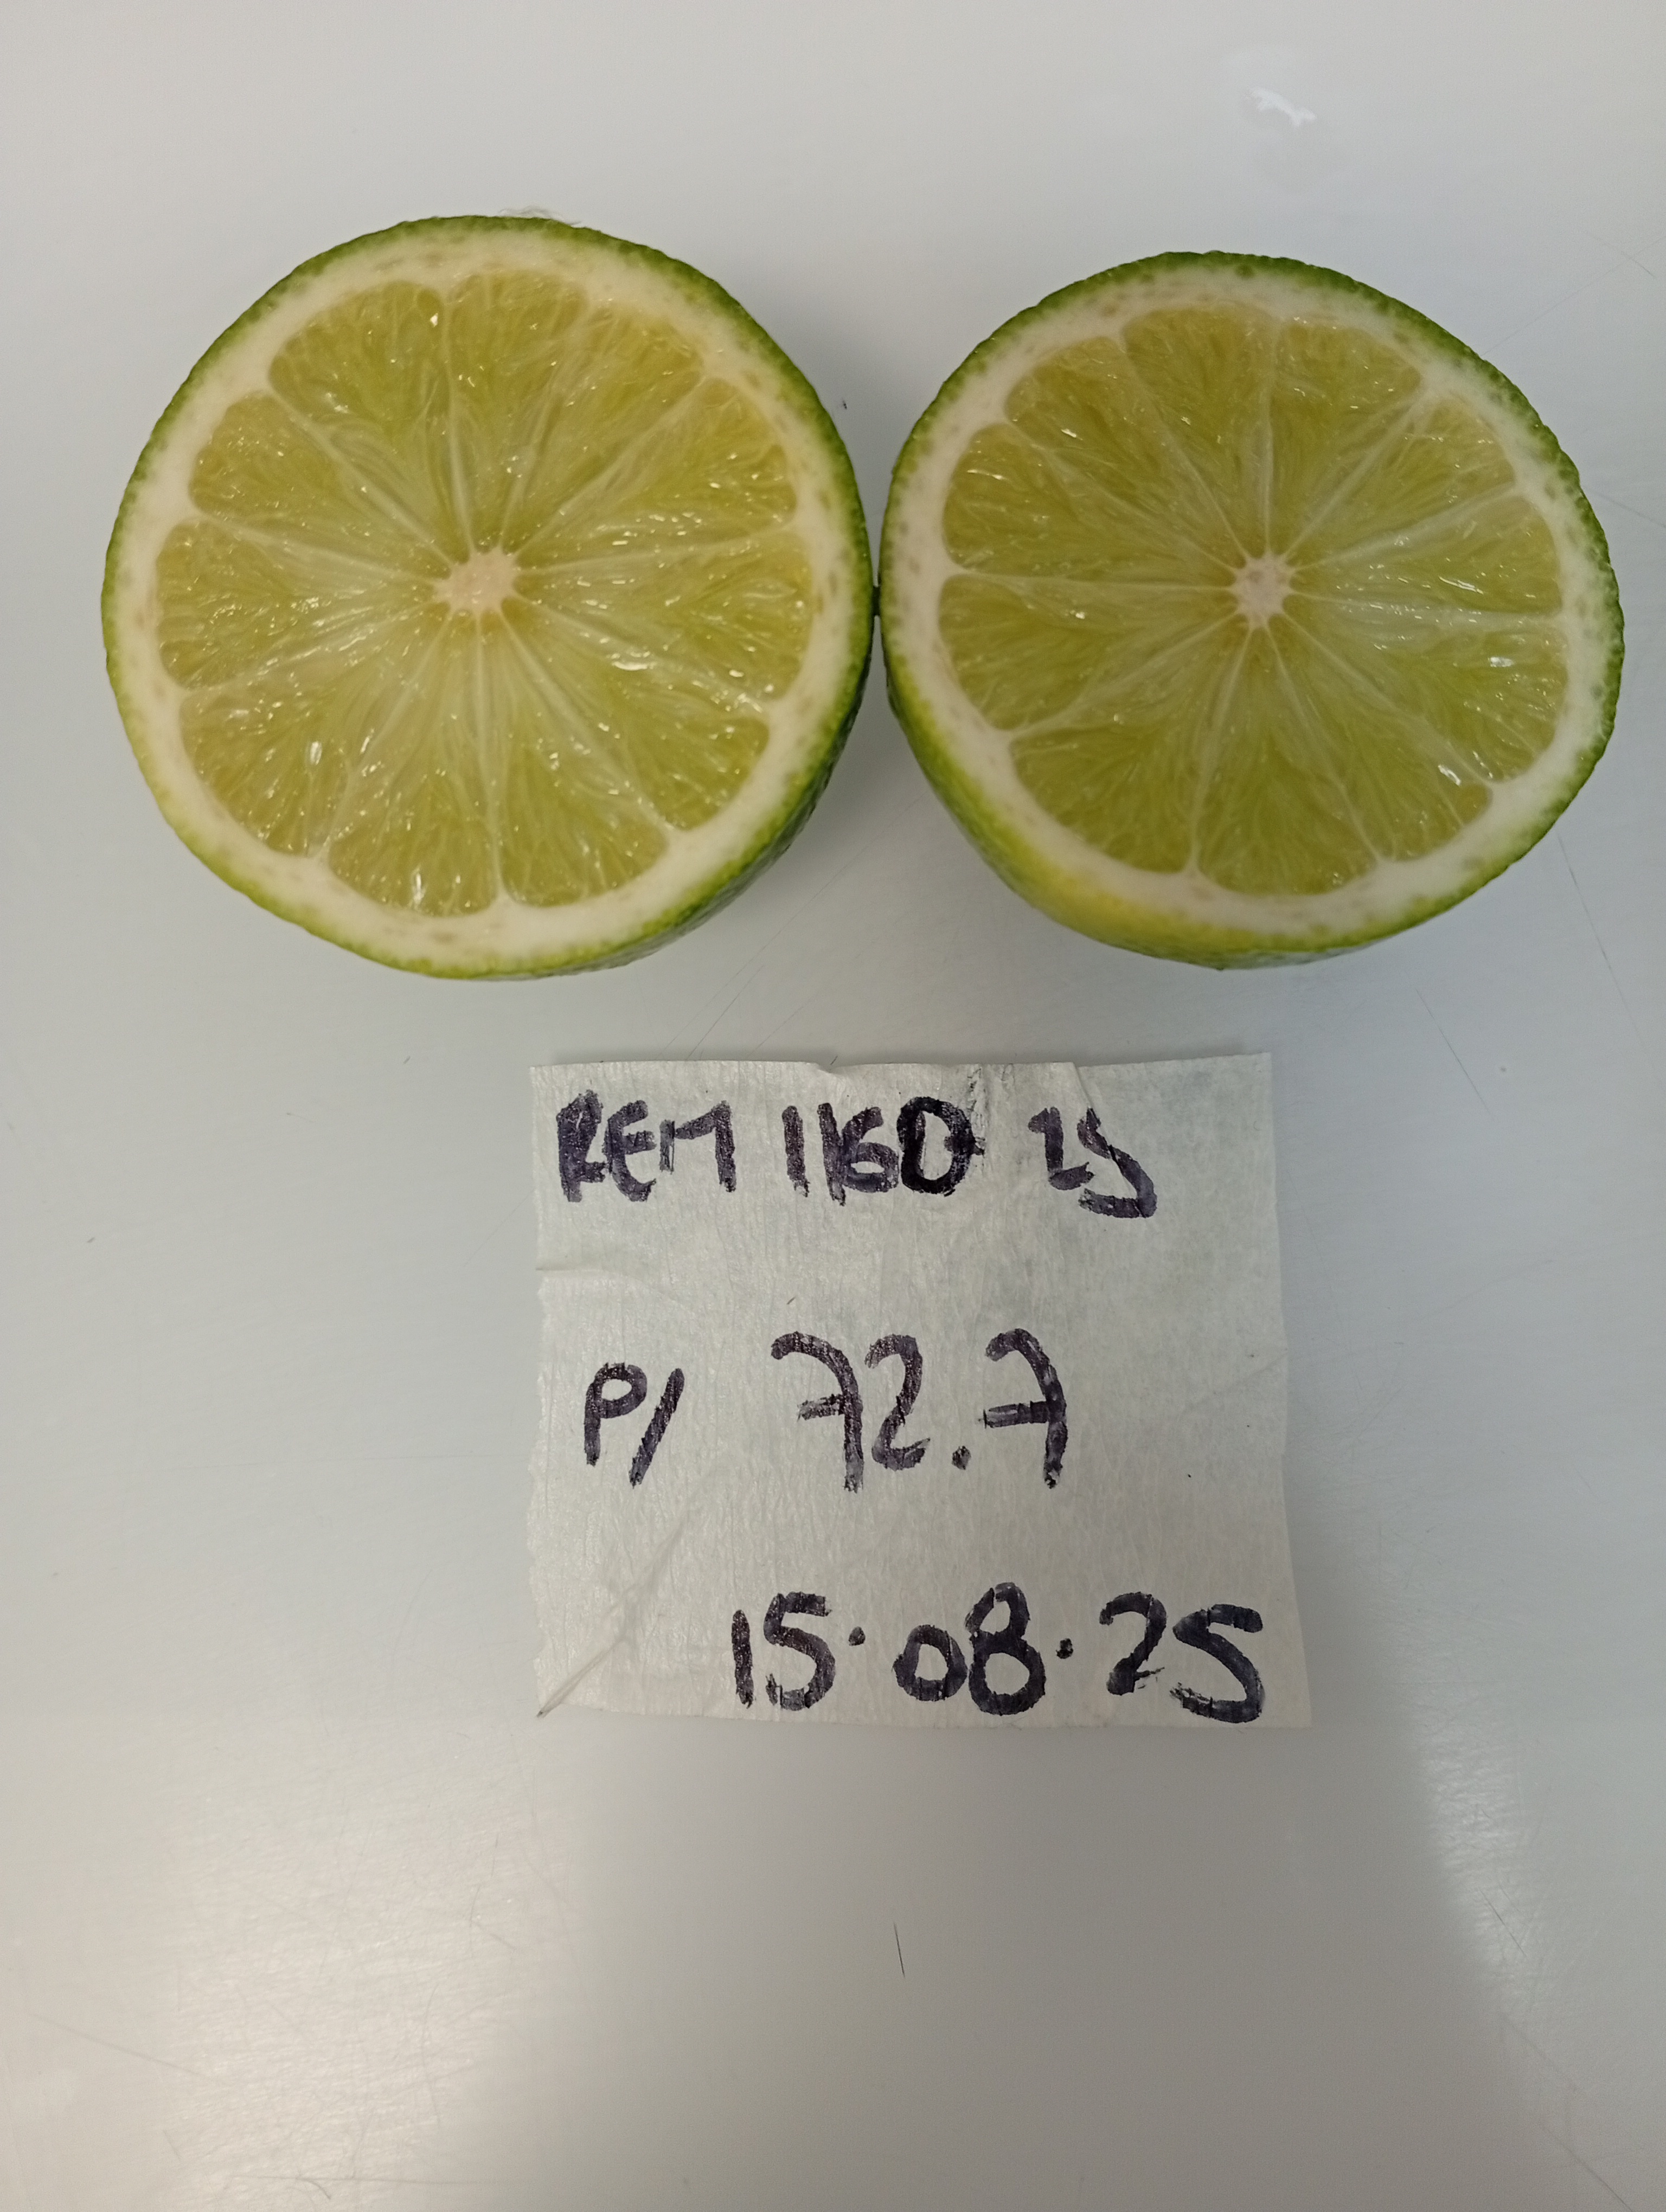 REM 1160 25
P/ 72.7
15.08.25